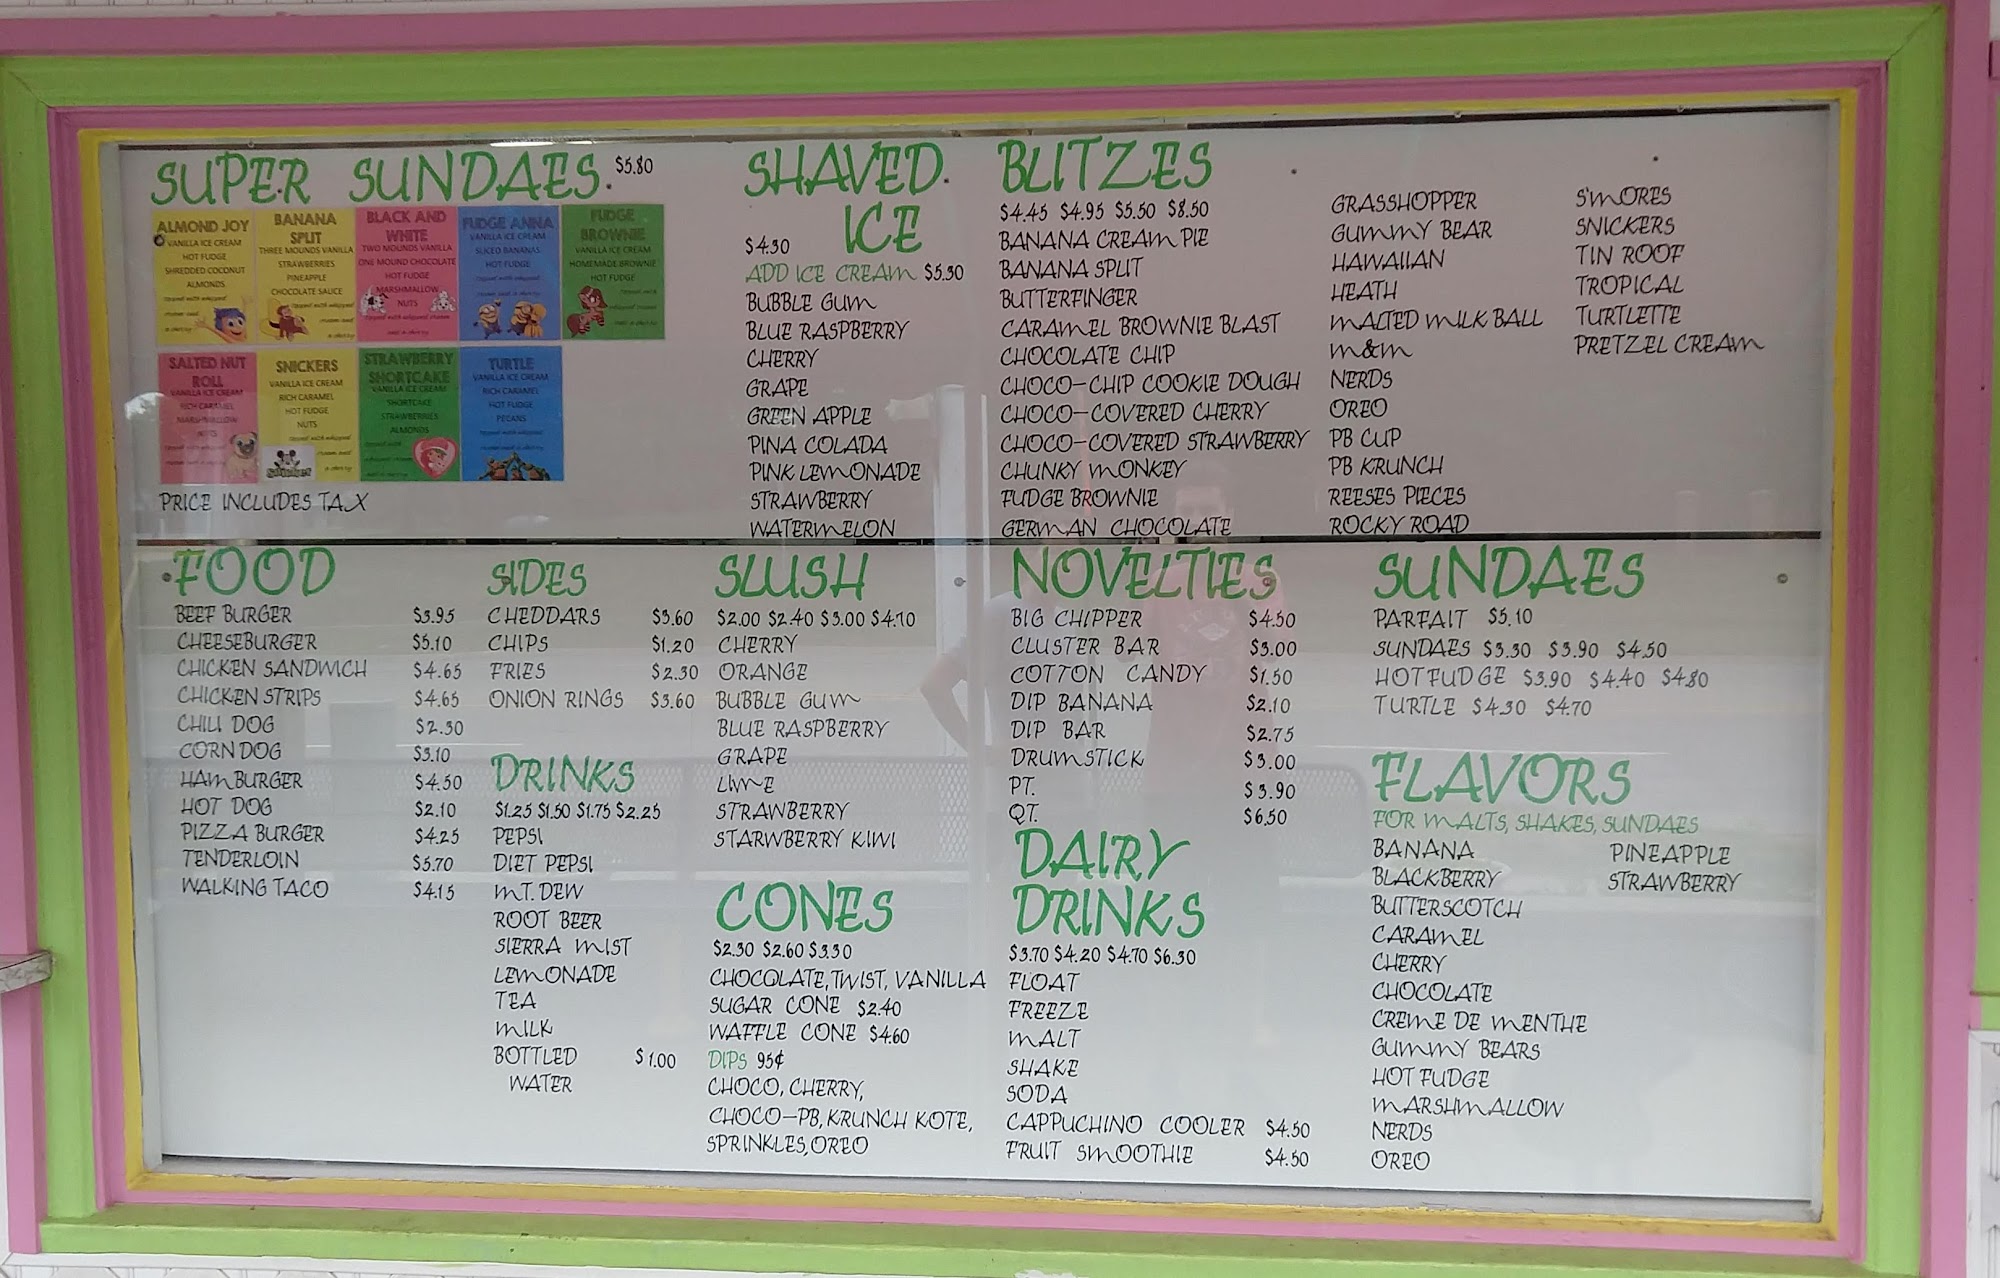 SUPER SUNDAES $5.80
ALMOND JOY
VANILLA ICE CREAM
HOT FUDGE
SHREDDED COCONUT
ALMONDS
topped with whipped
cream and
a cherry
BANANA
SPLIT
THREE MOUNDS VANILLA
STRAWBERRIES
PINEAPPLE
CHOCOLATE SAUCE
topped with whipped
cream and
a cherry
BLACK AND
WHITE
TWO MOUNDS VANILLA
ONE MOUND CHOCOLATE
HOT FUDGE
MARSHMALLOW
NUTS
topped with whipped cream
and a cherry
FUDGE ANNA
VANILLA ICE CREAM
SLICED BANANAS
HOT FUDGE
topped with whipped
cream and a cherry
FUDGE
BROWNIE
VANILLA ICE CREAM
HOMEMADE BROWNIE
HOT FUDGE
topped with
whipped cream
and a cherry
SALTED NUT
ROLL
VANILLA ICE CREAM
RICH CARAMEL
MARSHMALLOW
NUTS
topped with whipped
cream and a cherry
SNICKERS
VANILLA ICE CREAM
RICH CARAMEL
HOT FUDGE
NUTS
topped with whipped
cream and
a cherry
STRAWBERRY
SHORTCAKE
VANILLA ICE CREAM
SHORTCAKE
STRAWBERRIES
ALMONDS
topped with
whipped cream
and a cherry
TURTLE
VANILLA ICE CREAM
RICH CARAMEL
HOT FUDGE
PECANS
topped with whipped
cream and a cherry
PRICE INCLUDES TAX
SHAVED
ICE
$4.30
ADD ICE CREAM $5.30
BUBBLE GUM
BLUE RASPBERRY
CHERRY
GRAPE
GREEN APPLE
PINA COLADA
PINK LEMONADE
STRAWBERRY
WATERMELON
BLITZES
$4.45 $4.95 $5.50 $8.50
BANANA CREAM PIE
BANANA SPLIT
BUTTERFINGER
CARAMEL BROWNIE BLAST
CHOCOLATE CHIP
CHOCO-CHIP COOKIE DOUGH
CHOCO-COVERED CHERRY
CHOCO-COVERED STRAWBERRY
CHUNKY MONKEY
FUDGE BROWNIE
GERMAN CHOCOLATE
GRASSHOPPER
GUMMY BEAR
HAWAIIAN
HEATH
MALTED MILK BALL
M&M
NERDS
OREO
PB CUP
PB KRUNCH
REESES PIECES
ROCKY ROAD
S'MORES
SNICKERS
TIN ROOF
TROPICAL
TURTLETTE
PRETZEL CREAM
FOOD
BEEF BURGER $3.95
CHEESEBURGER $5.10
CHICKEN SANDWICH $4.65
CHICKEN STRIPS $4.65
CHILI DOG $2.30
CORN DOG $3.10
HAMBURGER $4.50
HOT DOG $2.10
PIZZA BURGER $4.25
TENDERLOIN $5.70
WALKING TACO $4.15
SIDES
CHEDDARS $3.60
CHIPS $1.20
FRIES $2.30
ONION RINGS $3.60
DRINKS
$1.25 $1.50 $1.75 $2.25
PEPSI
DIET PEPSI
MT. DEW
ROOT BEER
SIERRA MIST
LEMONADE
TEA
MILK
BOTTLED $1.00
WATER
SLUSH
$2.00 $2.40 $3.00 $4.70
CHERRY
ORANGE
BUBBLE GUM
BLUE RASPBERRY
GRAPE
LIME
STRAWBERRY
STARWBERRY KIWI
CONES
$2.30 $2.60 $3.30
CHOCOLATE, TWIST, VANILLA
SUGAR CONE $2.40
WAFFLE CONE $4.60
DIPS 95¢
CHOCO, CHERRY,
CHOCO-PB, KRUNCH KOTE,
SPRINKLES, OREO
NOVELTIES
BIG CHIPPER $4.50
CLUSTER BAR $3.00
COTTON CANDY $1.50
DIP BANANA $2.10
DIP BAR $2.75
DRUMSTICK $3.00
PT. $3.90
QT. $6.50
DAIRY
DRINKS
$3.70 $4.20 $4.70 $6.30
FLOAT
FREEZE
MALT
SHAKE
SODA
CAPPUCHINO COOLER $4.50
FRUIT SMOOTHIE $4.50
SUNDAES
PARFAIT $5.10
SUNDAES $3.30 $3.90 $4.50
HOT FUDGE $3.90 $4.40 $4.80
TURTLE $4.30 $4.70
FLAVORS
FOR MALTS, SHAKES, SUNDAES
BANANA
BLACKBERRY
BUTTERSCOTCH
CARAMEL
CHERRY
CHOCOLATE
CREME DE MENTHE
GUMMY BEARS
HOT FUDGE
MARSHMALLOW
NERDS
OREO
PINEAPPLE
STRAWBERRY